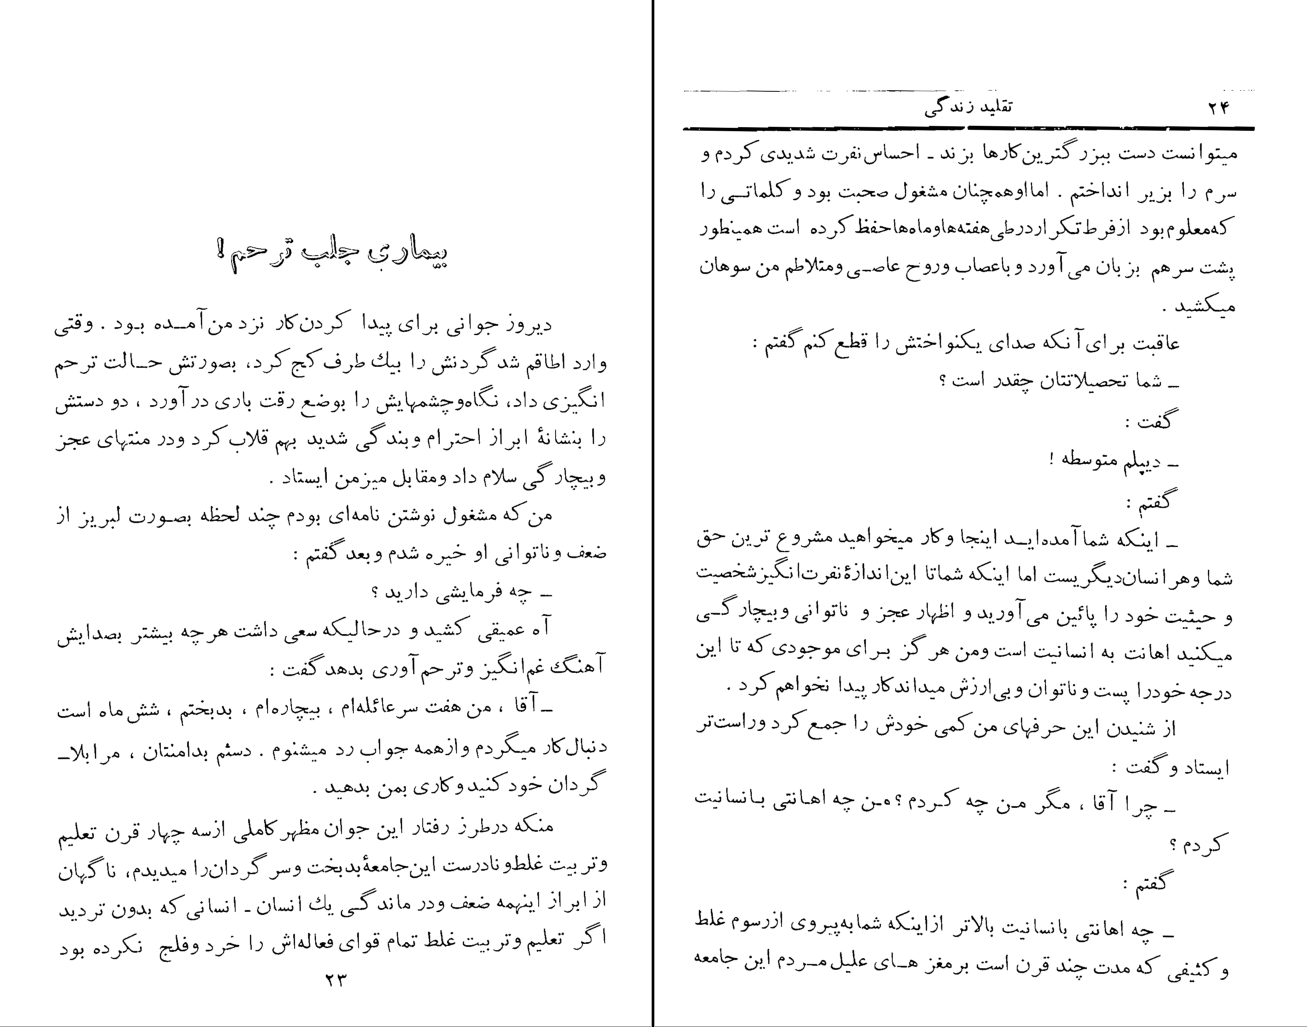 بیماری جلب ترحم!
دیروز جوانی برای پیدا کردن کار نزد من آمــده بـود . وقتی
وارد اطاقم شد گردنش را بیك طرف کج کرد، بصورتش حــالت ترحم
انگیزی داد، نگاه وچشمهایش را بوضع رقت باری در آورد ، دو دستش
را بنشانهٔ ابراز احترام وبندگی شدید بهم قلاب کرد ودر منتهای عجز
وبیچارگی سلام داد ومقابل میز من ایستاد .
من که مشغول نوشتن نامه‌ای بودم چند لحظه بصـورت لبریز از
ضعف وناتوانی او خیره شدم وبعد گفتم :
ــ چه فرمایشی دارید ؟
آه عمیقی کشید و درحالیکه سعی داشت هرچه بیشتر بصدایش
آهنگ غم‌انگیز وترحم‌آوری بدهد گفت :
ــ آقا ، من هفت سرعائله‌ام ، بیچاره‌ام ، بدبختم ، شش ماه است
دنبال کار میـگردم وازهمه جواب رد میشنوم . دستم بدامنتان ، مرا بلاــ
گردان خود کنید وکاری بمن بدهید .
منکه درطرز رفتار این جوان مظهر کاملی ازسه چهار قرن تعلیم
وتربیت غلط ونادرست این جامعهٔ بدبخت وسرگردان را میدیدم، ناگهان
از ابراز اینهمه ضعف ودرماندگـی یك انسان ـ انسانی که بدون تردید
اگر تعلیم وتربیت غلط تمام قوای فعاله‌اش را خرد وفلج نکرده بود
۲۳
۲۴
تقلید زندگی
میتوانست دست ببزرگترین کارها بزند ـ احساس نفرت شدیدی کردم و
سرم را بزیر انداختم . اما اوهمچنان مشغول صحبت بود و کلماتــی را
که معلوم بود ازفرط تکرار درطی هفته‌ها وماه‌ها حفظ کرده است همینطور
پشت سرهم بزبان می‌آورد و باعصاب وروح عاصـی ومتلاطم من سوهان
میکشید .
عاقبت برای آنکه صدای یکنواختش را قطع کنم گفتم :
ــ شما تحصیلاتتان چقدر است ؟
گفت :
ــ دیپلم متوسطه !
گفتم :
ــ اینکه شما آمده‌ایــد اینجا وکار میخواهید مشروع ترین حق
شما وهر انسان دیگریست اما اینکه شما تا این اندازهٔ نفرت‌انگیز شخصیت
و حیثیت خود را پائین می‌آورید و اظهار عجز و ناتوانی وبیچارگــی
میـکنید اهانت به انسانیت است ومن هرگز بـرای موجودی که تا این
درجه خودرا پست وناتوان وبی‌ارزش میداند کار پیدا نخواهم کرد .
از شنیدن این حرفهای من کمی خودش را جمع کرد وراست‌تر
ایستاد وگفت :
ــ چرا آقا ، مگر مـن چه کـردم ؟ مـن چه اهـانتی بـانسانیت
کردم ؟
گفتم :
ــ چه اهانتی بانسانیت بالاتر ازاینکه شما به پیروی ازرسوم غلط
و کثیفی که مدت چند قرن است بر مغز هــای علیل مــردم این جامعه